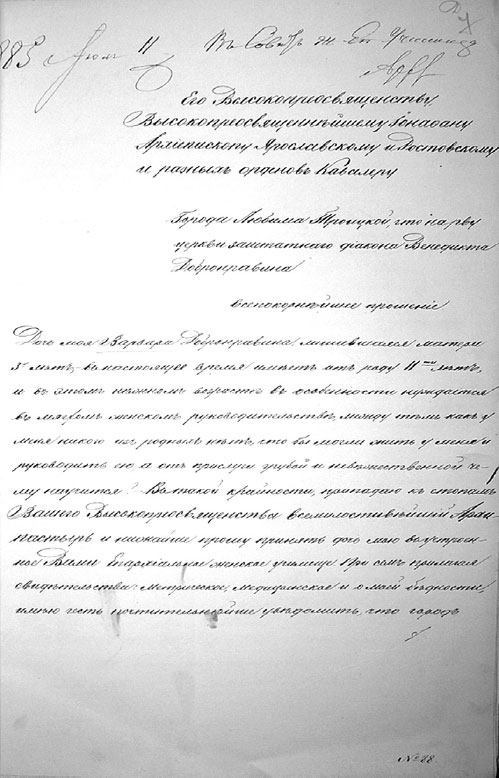 885 Іюля 11 Въ Совѣтъ ж. Еп. Училища
Его Высокопреосвященству,
Высокопреосвященнѣйшему Іонаѳану
Архіепископу Ярославскому и Ростовскому
и разныхъ орденовъ Кавалеру
Города Любима Троицкой, что на рву
церкви заштатнаго діакона Венедикта
Добронравина
всепокорнѣйшее прошеніе
Дочь моя Варвара Добронравина лишившаяся матери
3х лѣтъ въ настоящее время имѣетъ отъ роду 11ть лѣтъ,
и въ этомъ нѣжномъ возрастѣ въ особенности нуждается
въ мягкомъ женскомъ руководительствѣ, между тѣмъ какъ у
меня никого изъ родныхъ нѣтъ, что бы могли жить у меня и
руководить ею а отъ прислуги грубой и невѣжественной че-
му научится? Въ такой крайности, припадаю къ стопамъ
Вашего Высокопреосвященства всемилостивѣйшій Архи-
пастырь и нижайше прошу принять дочь мою въ устроен-
ное Вами Епархіальное женское училище. При семъ прилагая
свидѣтельства: Метрическое, Медицинское и о моей бѣдности,
имѣю честь почтительнѣйше увѣдомить, что городъ
№ 88